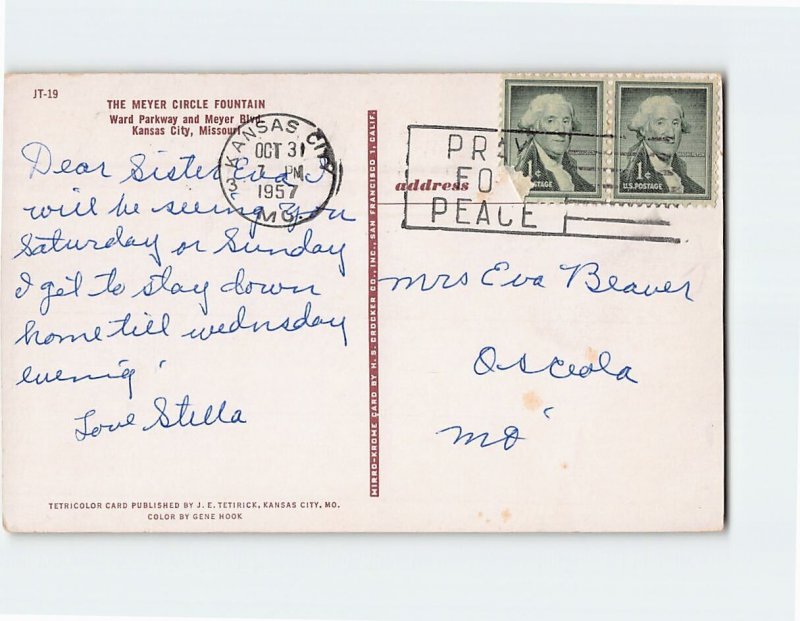 JT-19
THE MEYER CIRCLE FOUNTAIN
Ward Parkway and Meyer Blvd.
Kansas City, Missouri
Dear Sister Eva I
will be seeing you
Saturday or Sunday
I get to stay down
home till wednsday
evenig
Love Stella
TETRICOLOR CARD PUBLISHED BY J. E. TETIRICK, KANSAS CITY, MO.
COLOR BY GENE HOOK
KANSAS CITY
OCT 31
7 PM
1957
MO.
3
MIRRO-KROME CARD BY H. S. CROCKER CO., INC., SAN FRANCISCO 1, CALIF.
address
PRAY
FO
PEACE
1¢
POSTAGE
1¢
U.S. POSTAGE
Mrs Eva Beaver
Osceola
Mo